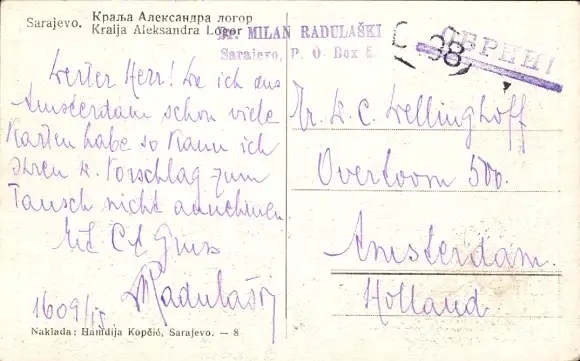 Sarajevo. Краља Александра логор
Kralja Aleksandra Logor
Dr. MILAN RADULAŠKI
Sarajevo, P. O. Box 5.
ОБРНИ!
98
Werter Herr! Da ich aus
Amsterdam schon viele
Karten habe so kann ich
Ihren w. Vorschlag zum
Tausch nicht annehmen.
Mit Grus
MRadulaški
Hr. W. C. Wellinghoff
Overtoom 500.
Amsterdam.
Holland
Naklada: Hamdija Kopčić, Sarajevo. — 8